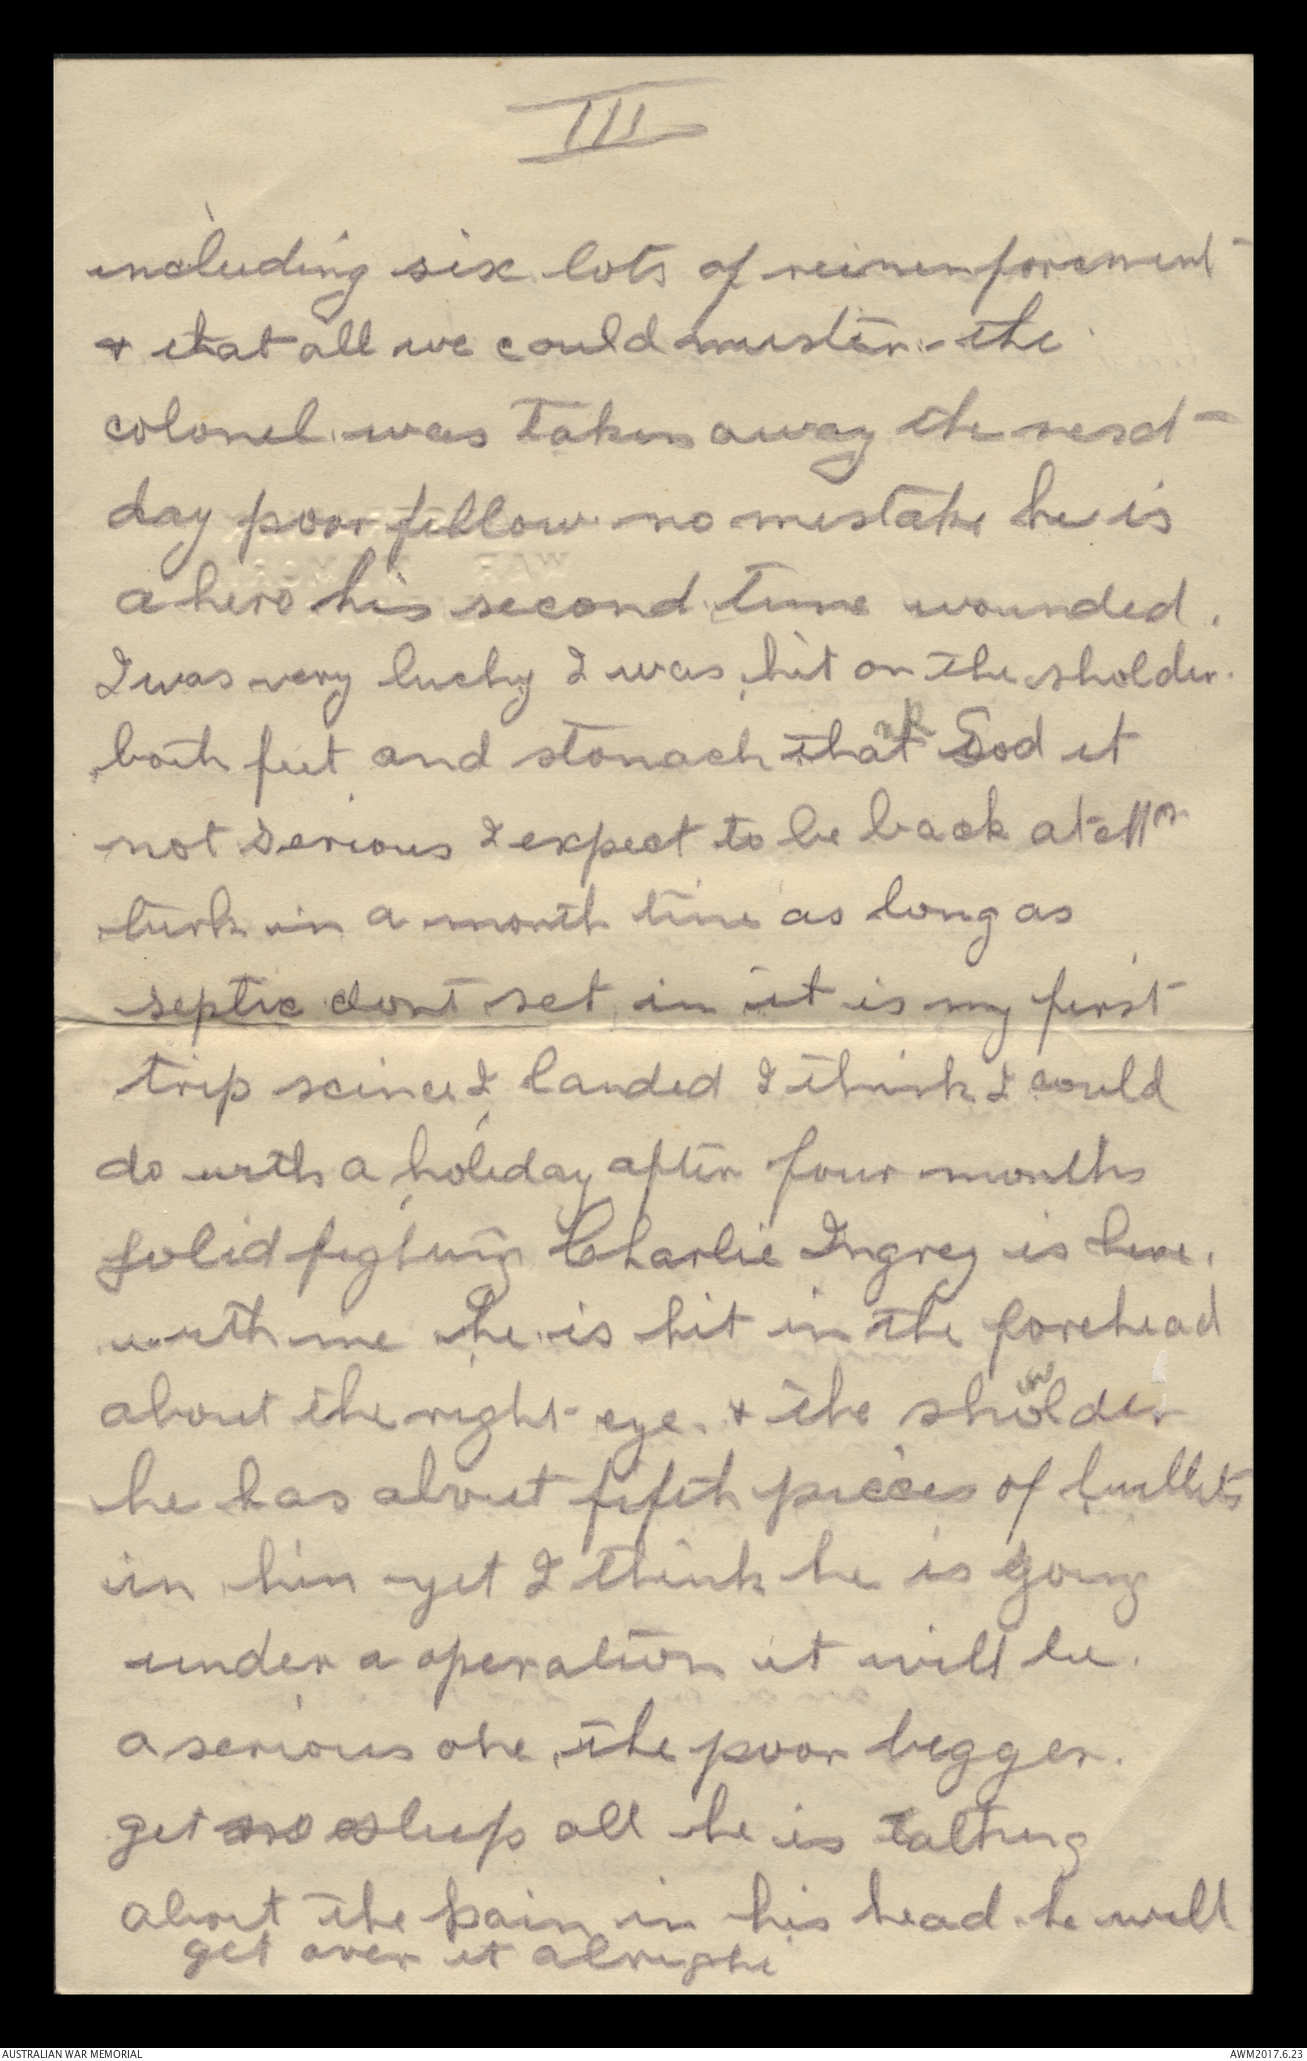 III
including six lots of reinenforcement
& that all we could muster. the
colonel was taken away the next
day poor fellow no mistake he is
a hero his second time wounded.
I was very lucky I was hit on the sholder
both feet and stomach that God it
not serious I expect to be back at
turk in a month time as long as
septic dont set in it is my first
trip scince I landed I think I could
do with a holiday after four months
solid fighting Charlie Ingrey is here.
with me he is hit in the forehead
about the right eye. & the sholder
he has about fifth pieces of bullets
in him yet I think he is going
under a operation it will be.
a serious one, the poor begger.
get no sleep all he is talking
about the pain in his head he will
get over it alright
AUSTRALIAN WAR MEMORIAL
AWM2017.6.23